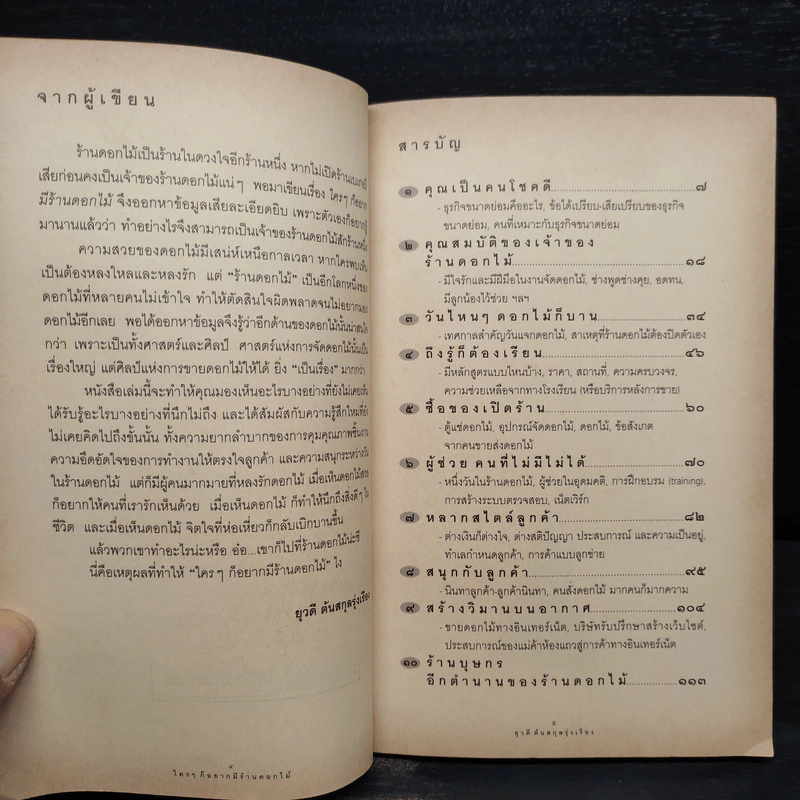 จากผู้เขียน
ร้านดอกไม้เป็นร้านในดวงใจอีกร้านหนึ่ง หากไม่เปิดร้าน
เสียก่อนคงเป็นเจ้าของร้านดอกไม้แน่ๆ พอมาเขียนเรื่อง ใครๆ ก็อยาก
มีร้านดอกไม้ จึงออกหาข้อมูลเสียละเอียดยิบ เพราะตัวเองก็อยากรู้
มานานแล้วว่า ทำอย่างไรจึงสามารถเป็นเจ้าของร้านดอกไม้สักร้านหนึ่ง
ความสวยของดอกไม้มีเสน่ห์เหนือกาลเวลา หากใครพบเห็น
เป็นต้องหลงใหลและหลงรัก แต่ “ร้านดอกไม้” เป็นอีกโลกหนึ่งของ
ดอกไม้ที่หลายคนไม่เข้าใจ ทำให้ตัดสินใจผิดพลาดจนไม่อยากมอง
ดอกไม้อีกเลย พอได้ออกหาข้อมูลจึงรู้ว่าอีกด้านของดอกไม้นั้นน่าสนใจ
กว่า เพราะเป็นทั้งศาสตร์และศิลป์ ศาสตร์แห่งการจัดดอกไม้นั้นเป็น
เรื่องใหญ่ แต่ศิลป์แห่งการขายดอกไม้ให้ได้ ยิ่ง “เป็นเรื่อง” มากกว่า
หนังสือเล่มนี้จะทำให้คุณมองเห็นอะไรบางอย่างที่ยังไม่เคยเห็น
ได้รับรู้อะไรบางอย่างที่นึกไม่ถึง และได้สัมผัสกับความรู้สึกใหม่ที่ยัง
ไม่เคยคิดไปถึงขั้นนั้น ทั้งความยากลำบากของการคุมคุณภาพชิ้นงาน
ความอึดอัดใจของการทำงานให้ตรงใจลูกค้า และความสนุกระหว่างวัน
ในร้านดอกไม้ แต่ก็มีผู้คนมากมายที่หลงรักดอกไม้ เมื่อเห็นดอกไม้สวย
ก็อยากให้คนที่เรารักเห็นด้วย เมื่อเห็นดอกไม้ ก็ทำให้นึกถึงสิ่งดีๆ ใน
ชีวิต และเมื่อเห็นดอกไม้ จิตใจที่ห่อเหี่ยวก็กลับเบิกบานขึ้น
แล้วพวกเขาทำอะไรน่ะหรือ อ๋อ...เขาก็ไปที่ร้านดอกไม้น่ะซี
นี่คือเหตุผลที่ทำให้ “ใครๆ ก็อยากมีร้านดอกไม้” ไง
ยุวดี ต้นสกุลรุ่งเรือง
ใครๆ ก็อยากมีร้านดอกไม้
สารบัญ
๑ คุณเป็นคนโชคดี..........๗
- ธุรกิจขนาดย่อมคืออะไร, ข้อได้เปรียบ-เสียเปรียบของธุรกิจ
ขนาดย่อม, คนที่เหมาะกับธุรกิจขนาดย่อม
๒ คุณสมบัติของเจ้าของ
ร้านดอกไม้..........๑๘
- มีใจรักและมีฝีมือในงานจัดดอกไม้, ช่างพูดช่างคุย, อดทน,
มีลูกน้องไว้ช่วย ฯลฯ
๓ วันไหนๆ ดอกไม้ก็บาน..........๓๔
- เทศกาลสำคัญวันแจกดอกไม้, สาเหตุที่ร้านดอกไม้ต้องปิดตัวเอง
๔ ถึงรู้ก็ต้องเรียน..........๔๖
- มีหลักสูตรแบบไหนบ้าง, ราคา, สถานที่, ความครบวงจร,
ความช่วยเหลือจากทางโรงเรียน (หรือบริการหลังการขาย)
๕ ซื้อของเปิดร้าน..........๖๐
- ตู้แช่ดอกไม้, อุปกรณ์จัดดอกไม้, ดอกไม้, ข้อสังเกต
จากคนขายส่งดอกไม้
๖ ผู้ช่วย คนที่ไม่มีไม่ได้..........๗๐
- หนึ่งวันในร้านดอกไม้, ผู้ช่วยในอุดมคติ, การฝึกอบรม (training),
การสร้างระบบตรวจสอบ, เน็ตเวิร์ก
๗ หลากสไตล์ลูกค้า..........๘๒
- ต่างเงินก็ต่างใจ, ต่างสติปัญญา ประสบการณ์ และความเป็นอยู่,
ทำเลกำหนดลูกค้า, การค้าแบบลูกข่าย
๘ สนุกกับลูกค้า..........๙๕
- นินทาลูกค้า-ลูกค้านินทา, คนสั่งดอกไม้ มากคนก็มากความ
๙ สร้างวิมานบนอากาศ..........๑๐๔
- ขายดอกไม้ทางอินเทอร์เน็ต, บริษัทรับปรึกษาสร้างเว็บไซต์,
ประสบการณ์ของแม่ค้าห้องแถวสู่การค้าทางอินเทอร์เน็ต
๑๐ ร้านบุษกร
อีกตำนานของร้านดอกไม้..........๑๑๓
ยุวดี ต้นสกุลรุ่งเรือง